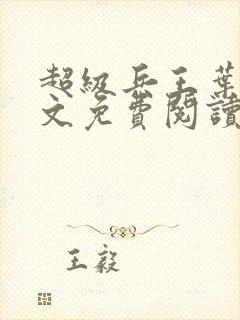 超级兵王葉
文免費閱讀
王毅